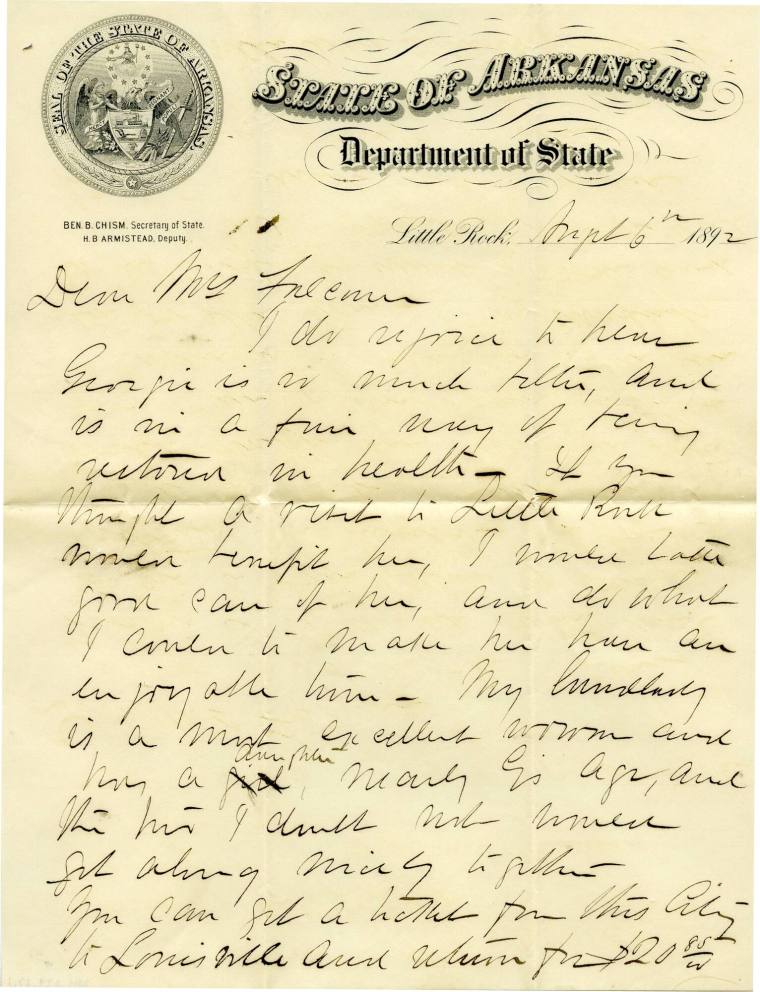 SEAL OF THE STATE OF ARKANSAS.
STATE OF ARKANSAS
Department of State
BEN. B. CHISM, Secretary of State.
H. B ARMISTEAD, Deputy.
Little Rock, Sept 6th 1892
Dear Mrs Falconer
I do rejoice to hear
Georgie is so much better, and
is in a fair way of being
restored in health — If you
thought a visit to Little Rock
would benefit her, I would take
good care of her, and do what
I could to make her have an
enjoyable time — My landlady
is a most excellent woman and
has a girl daughter, nearly G's age, and
the two I doubt not would
get along nicely together
You can get a ticket from this City
to Louisville and return for $20 85/00